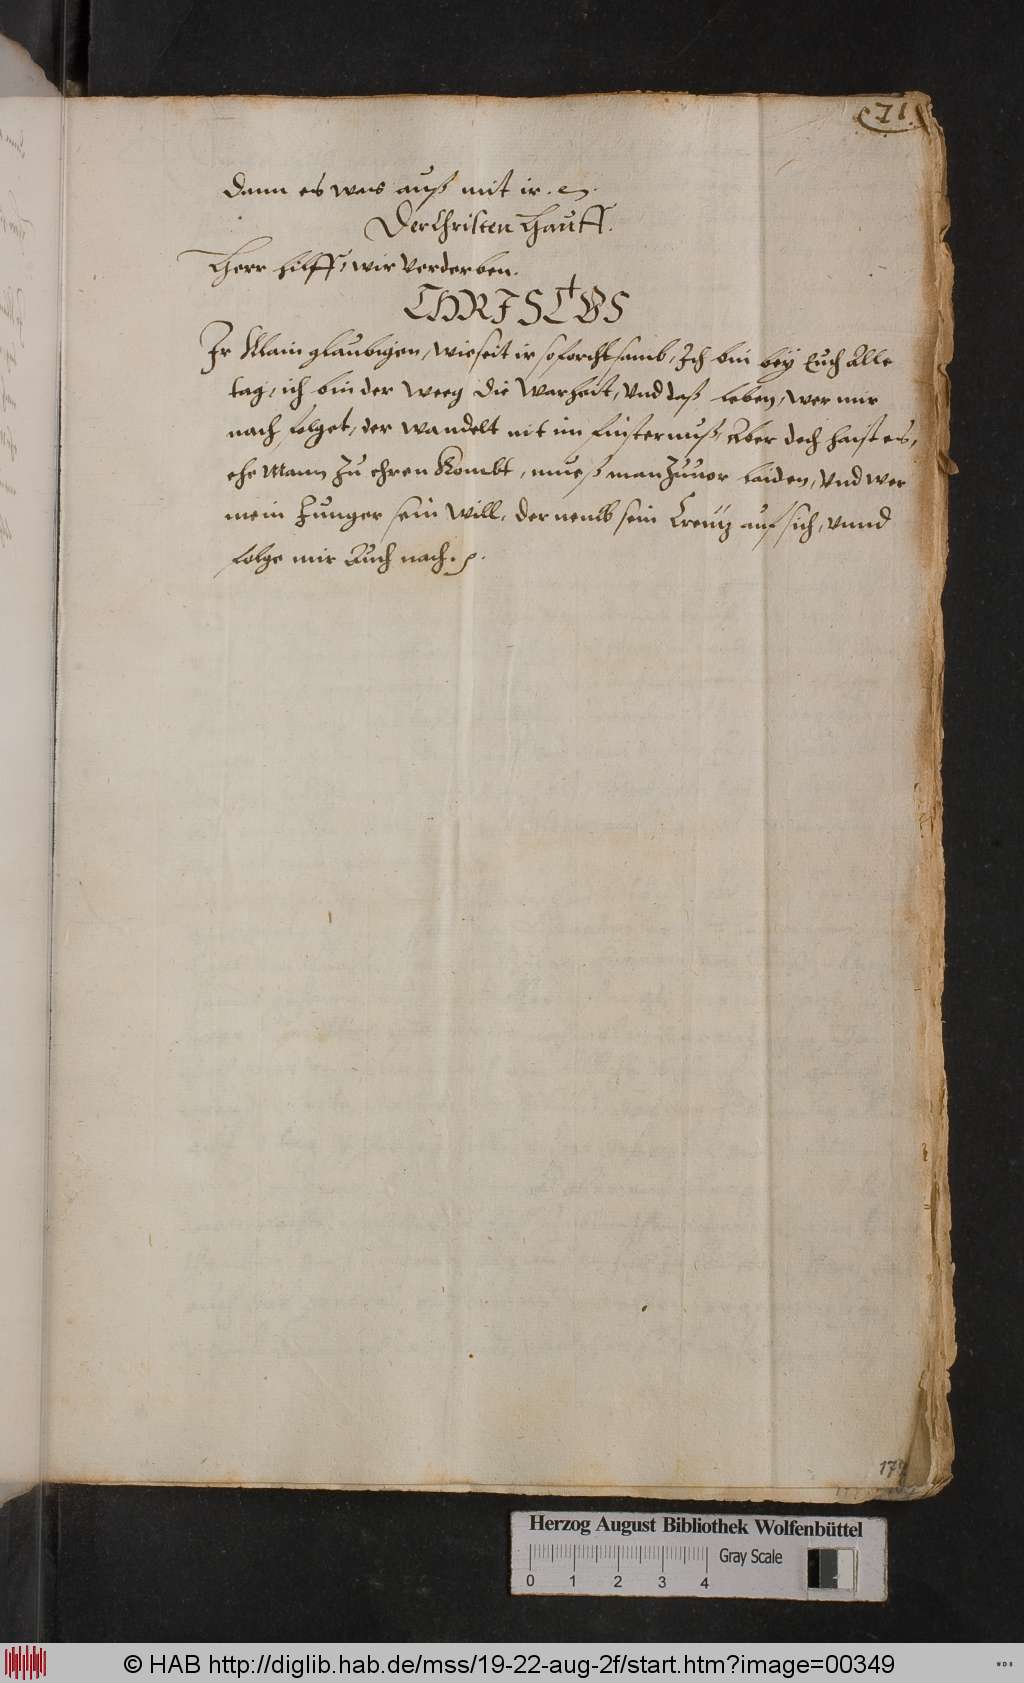 71
dann es was auß mit ir.
Der Christen Hauff.
Herr hilff, wir verderben.
CHRISTVS
Ir Klain glaubigen, wie seit ir so forchtsamb, Ich bin bey Euch Alle
tag, ich bin der Weeg die Warheit, Vnd daß leben, wer mir
nach folget, der wandelt nit im finsternuß, Aber doch haist es,
ehe Mann Zu ehren Kombt, mueß man Zuuor laiden, Vnd wer
mein Junger sein will, der nemb sein Creütz auf sich, vnnd
folge mir Auch nach.
Herzog August Bibliothek Wolfenbüttel
Gray Scale
0 1 2 3 4
© HAB http://diglib.hab.de/mss/19-22-aug-2f/start.htm?image=00349